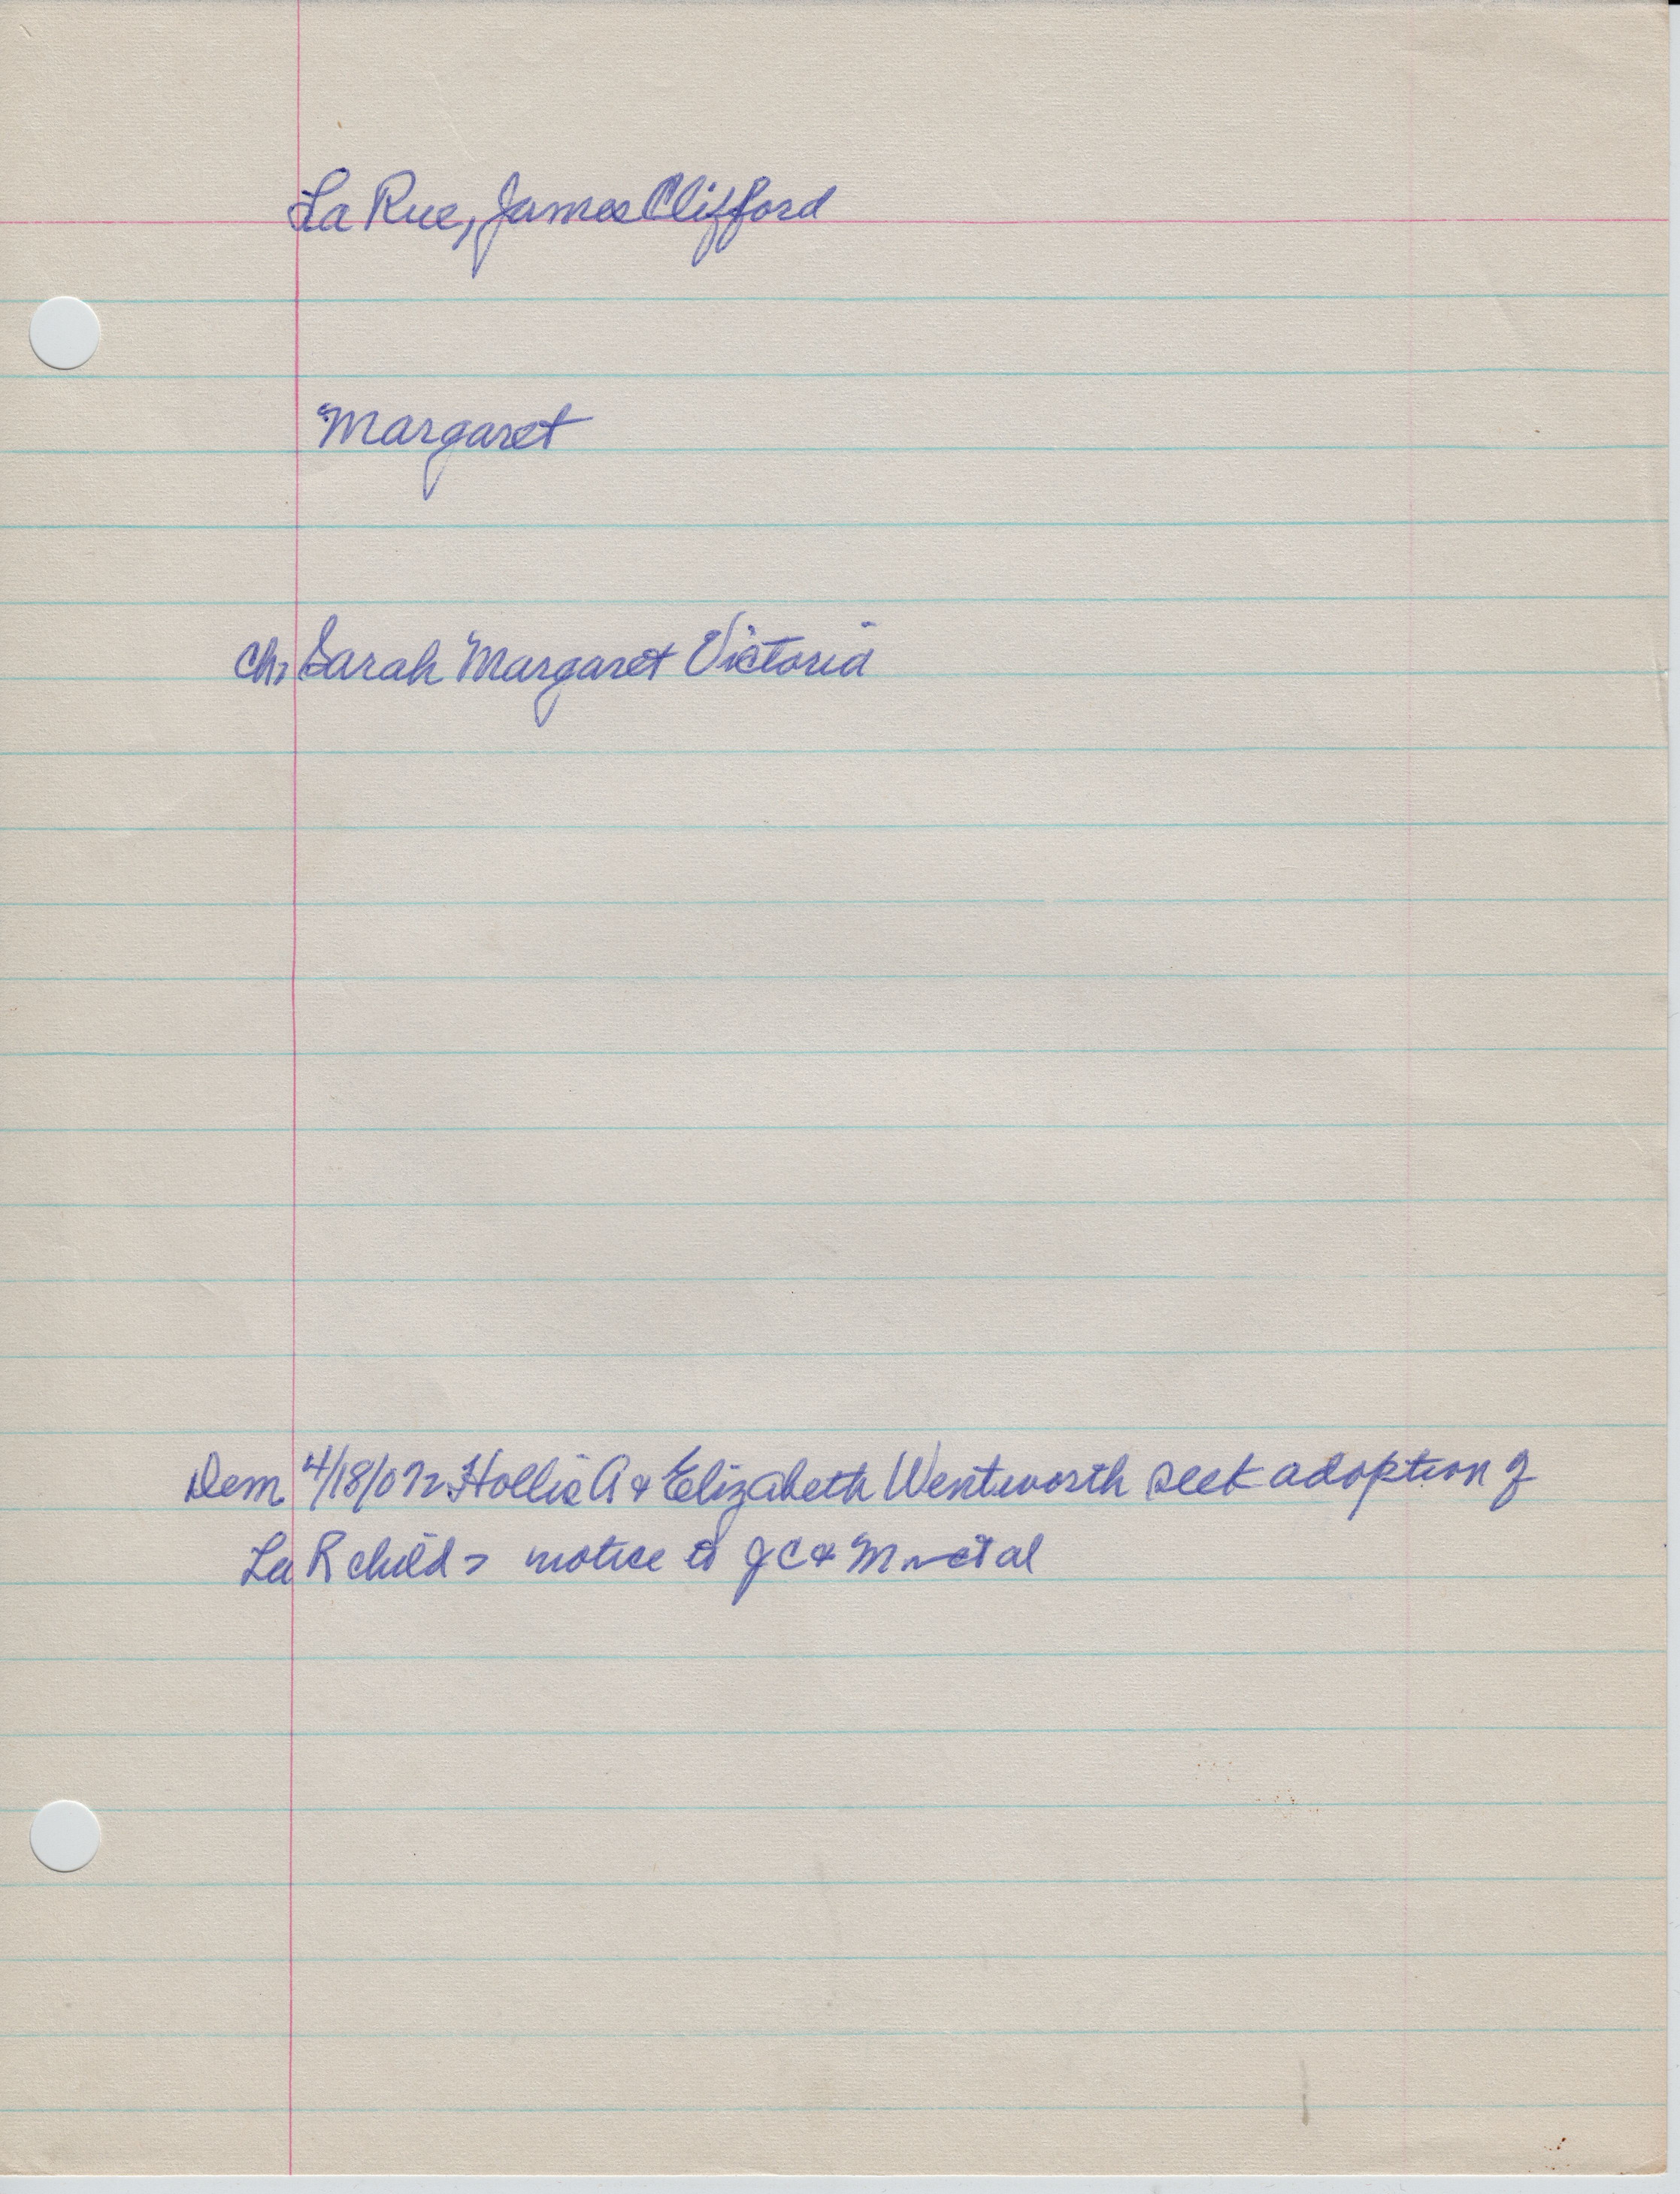 La Rue, James Clifford
Margaret
Ch: Sarah Margaret Victoria
Dem 4/18/07 Hollis A & Elizabeth Wentworth seek adoption of
La R child notice to J C & M et al